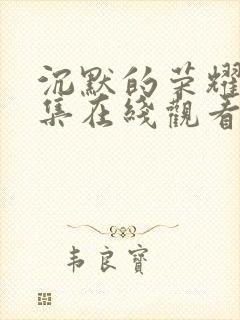 沉默的荣耀
集在綫觀看
韦良寶